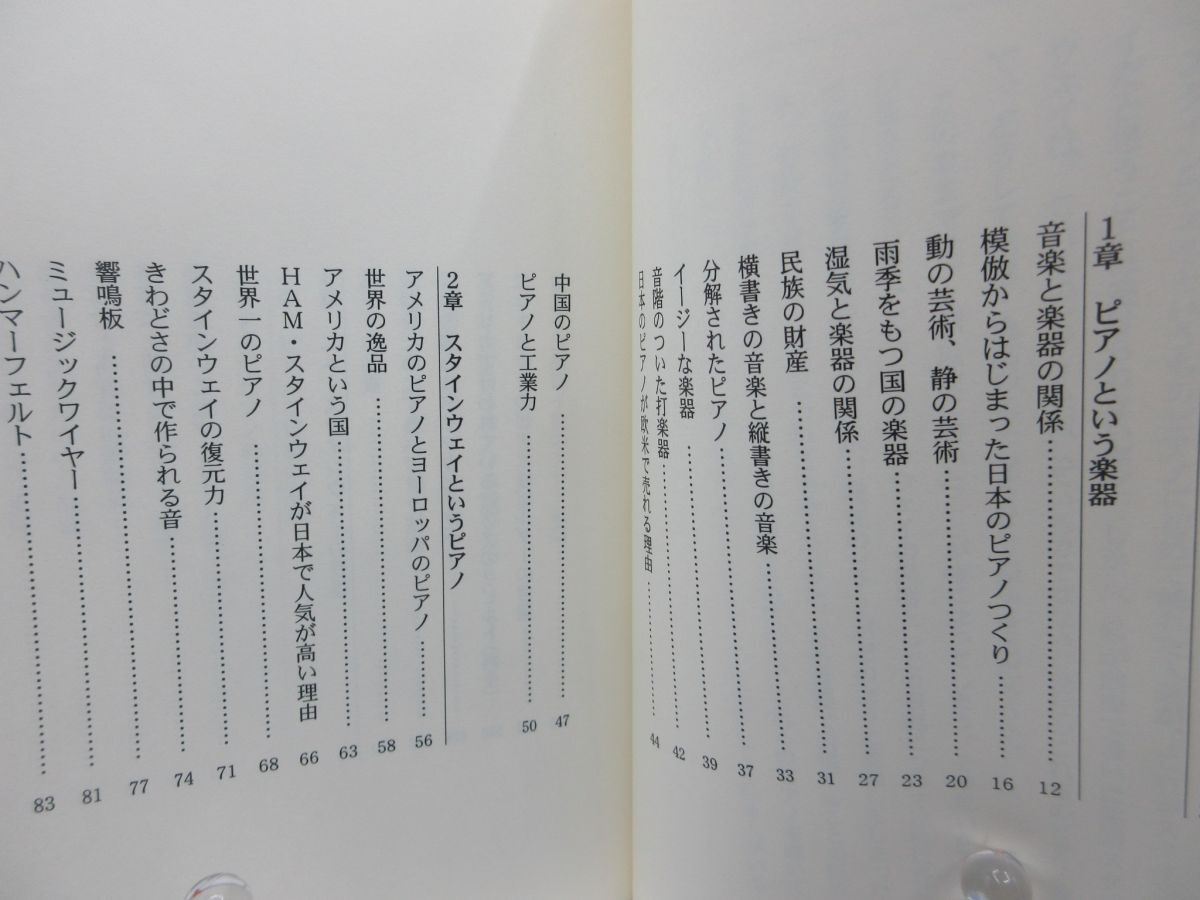 1章　ピアノという楽器
音楽と楽器の関係……………………12
模倣からはじまった日本のピアノつくり………16
動の芸術、静の芸術……………………20
雨季をもつ国の楽器……………………23
湿気と楽器の関係……………………27
民族の財産……………………31
横書きの音楽と縦書きの音楽……………………33
分解されたピアノ……………………37
イージーな楽器……………………39
音階のついた打楽器……………………42
日本のピアノが欧米で売れる理由……………44
中国のピアノ……………………47
ピアノと工業力……………………50
2章　スタインウェイというピアノ
アメリカのピアノとヨーロッパのピアノ………56
世界の逸品……………………58
アメリカという国……………………63
HAM・スタインウェイが日本で人気が高い理由 66
世界一のピアノ……………………68
スタインウェイの復元力……………………71
きわどさの中で作られる音……………………74
響鳴板……………………77
ミュージックワイヤー……………………81
ハンマーフェルト……………………83